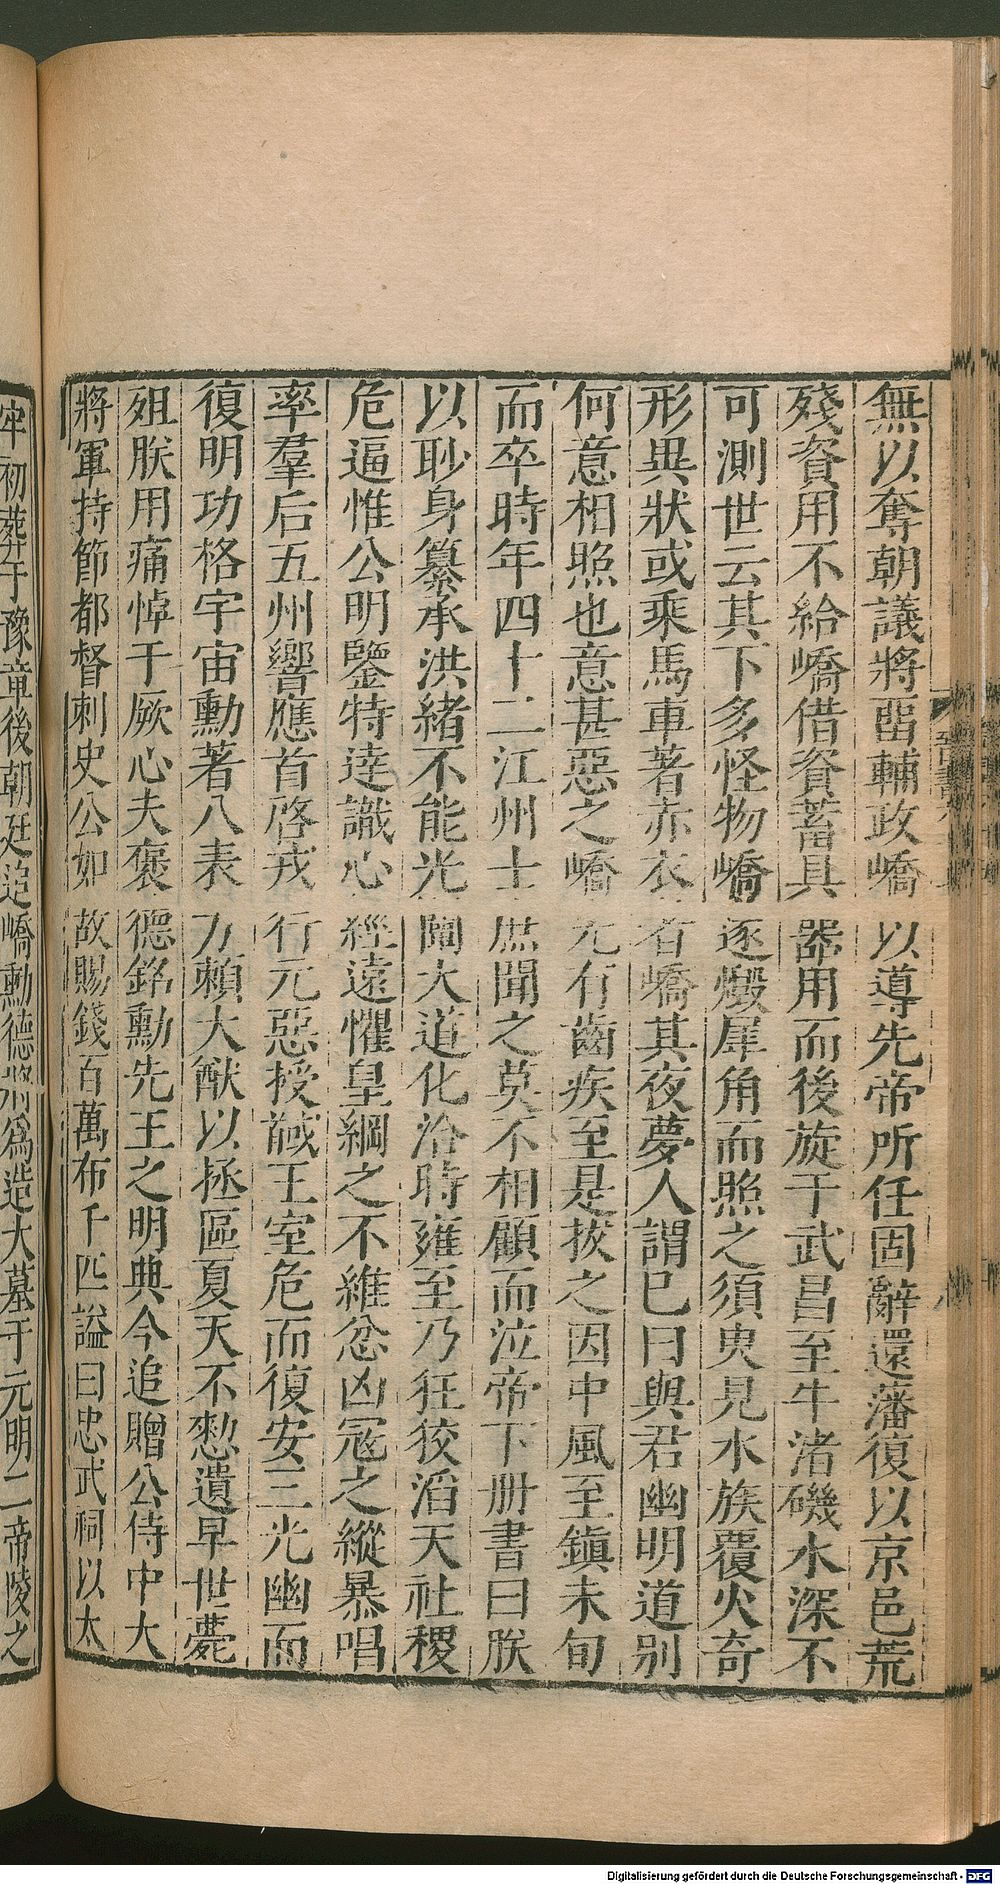 無以奪朝議將畱輔政嶠以導先帝所任固辭還藩復以京邑荒
殘資用不給嶠借資蓄具器用而後旋于武昌至牛渚磯水深不
可測世云其下多怪物嶠遂燬犀角而照之須臾見水族覆火奇
形異狀或乘馬車著赤衣者嶠其夜夢人謂巳曰與君幽明道别
何意相照也意甚惡之嶠先有齒疾至是拔之因中風至鎮未旬
而卒時年四十二江州士庶聞之莫不相顧而泣帝下册書曰朕
以眇身纂承洪緒不能光闡大道化洽時雍至乃狂狡滔天社稷
危逼惟公明鑒特達識心經遠懼皇綱之不維忿凶寇之縱暴唱
率羣后五州響應首啓戎行元惡授馘王室危而復安三光幽而
復明功格宇宙勳著八表方賴大猷以拯區夏天不憖遺早世薨
殂朕用痛悼于厥心夫褒德銘勳先王之明典今追贈公侍中大
將軍持節都督刺史公如故賜錢百萬布千匹謚曰忠武祠以太
牢初葬于豫章後朝廷追嶠勳德將爲造大墓于元明二帝陵之
Digitalisierung gefördert durch die Deutsche Forschungsgemeinschaft - DFG